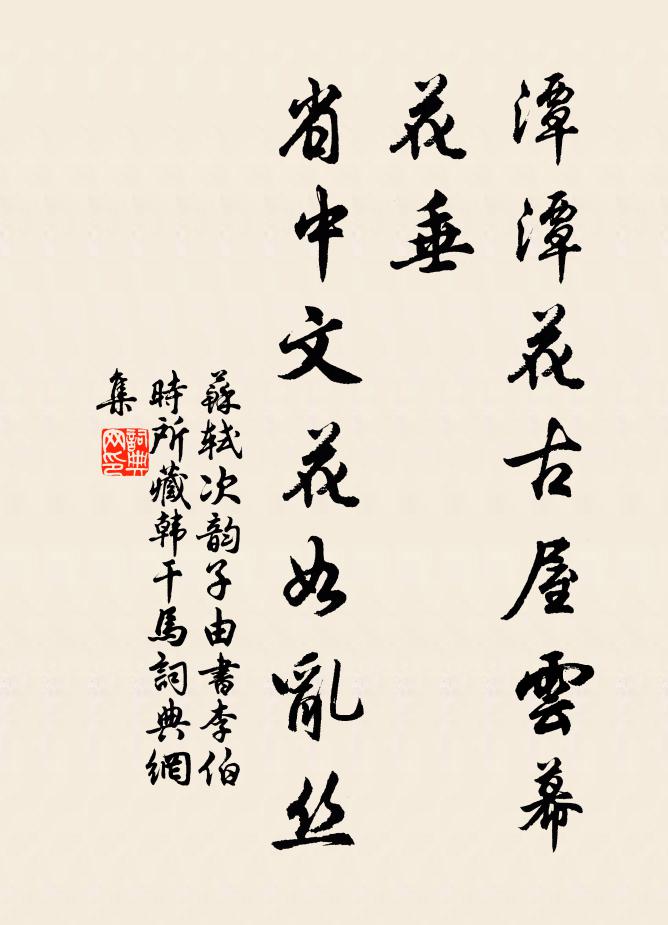 潭潭花古屋雲幕
花垂
省中文花如亂丝
蘇轼次韵子由書李伯
時所藏韩干馬詞典網
集
詞典网印